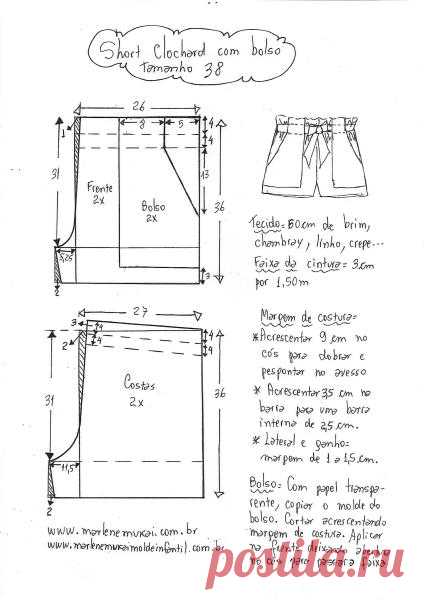 Short Clochard com bolso
tamanho 38
26
8
5
4
4
1
31
Frente
2x
Bolso
2x
13
36
5,25
3
2
Tecido = 80cm de brim,
chambray, linho, crepe...
Faixa da cintura = 3cm
por 1,50m
27
3
4
4
2
4
4
Costas
2x
31
36
11,5
2
Margem de costura =
*Acrescentar 9 cm no
cós para dobrar e
pespontar no avesso
* Acrescentar 3,5 cm na
barra para uma barra
interna de 2,5cm.
* Lateral e gancho =
margem de 1 a 1,5cm.
Bolso = Com papel transpa-
rente, copiar o molde do
bolso. Cortar acrescentando
margem de costura. Aplicar
na frente deixando abertura
no cós para passar a faixa
www.marlenemukai.com.br
www.marlenemukaimoldeinfantil.com.br
postila.ru